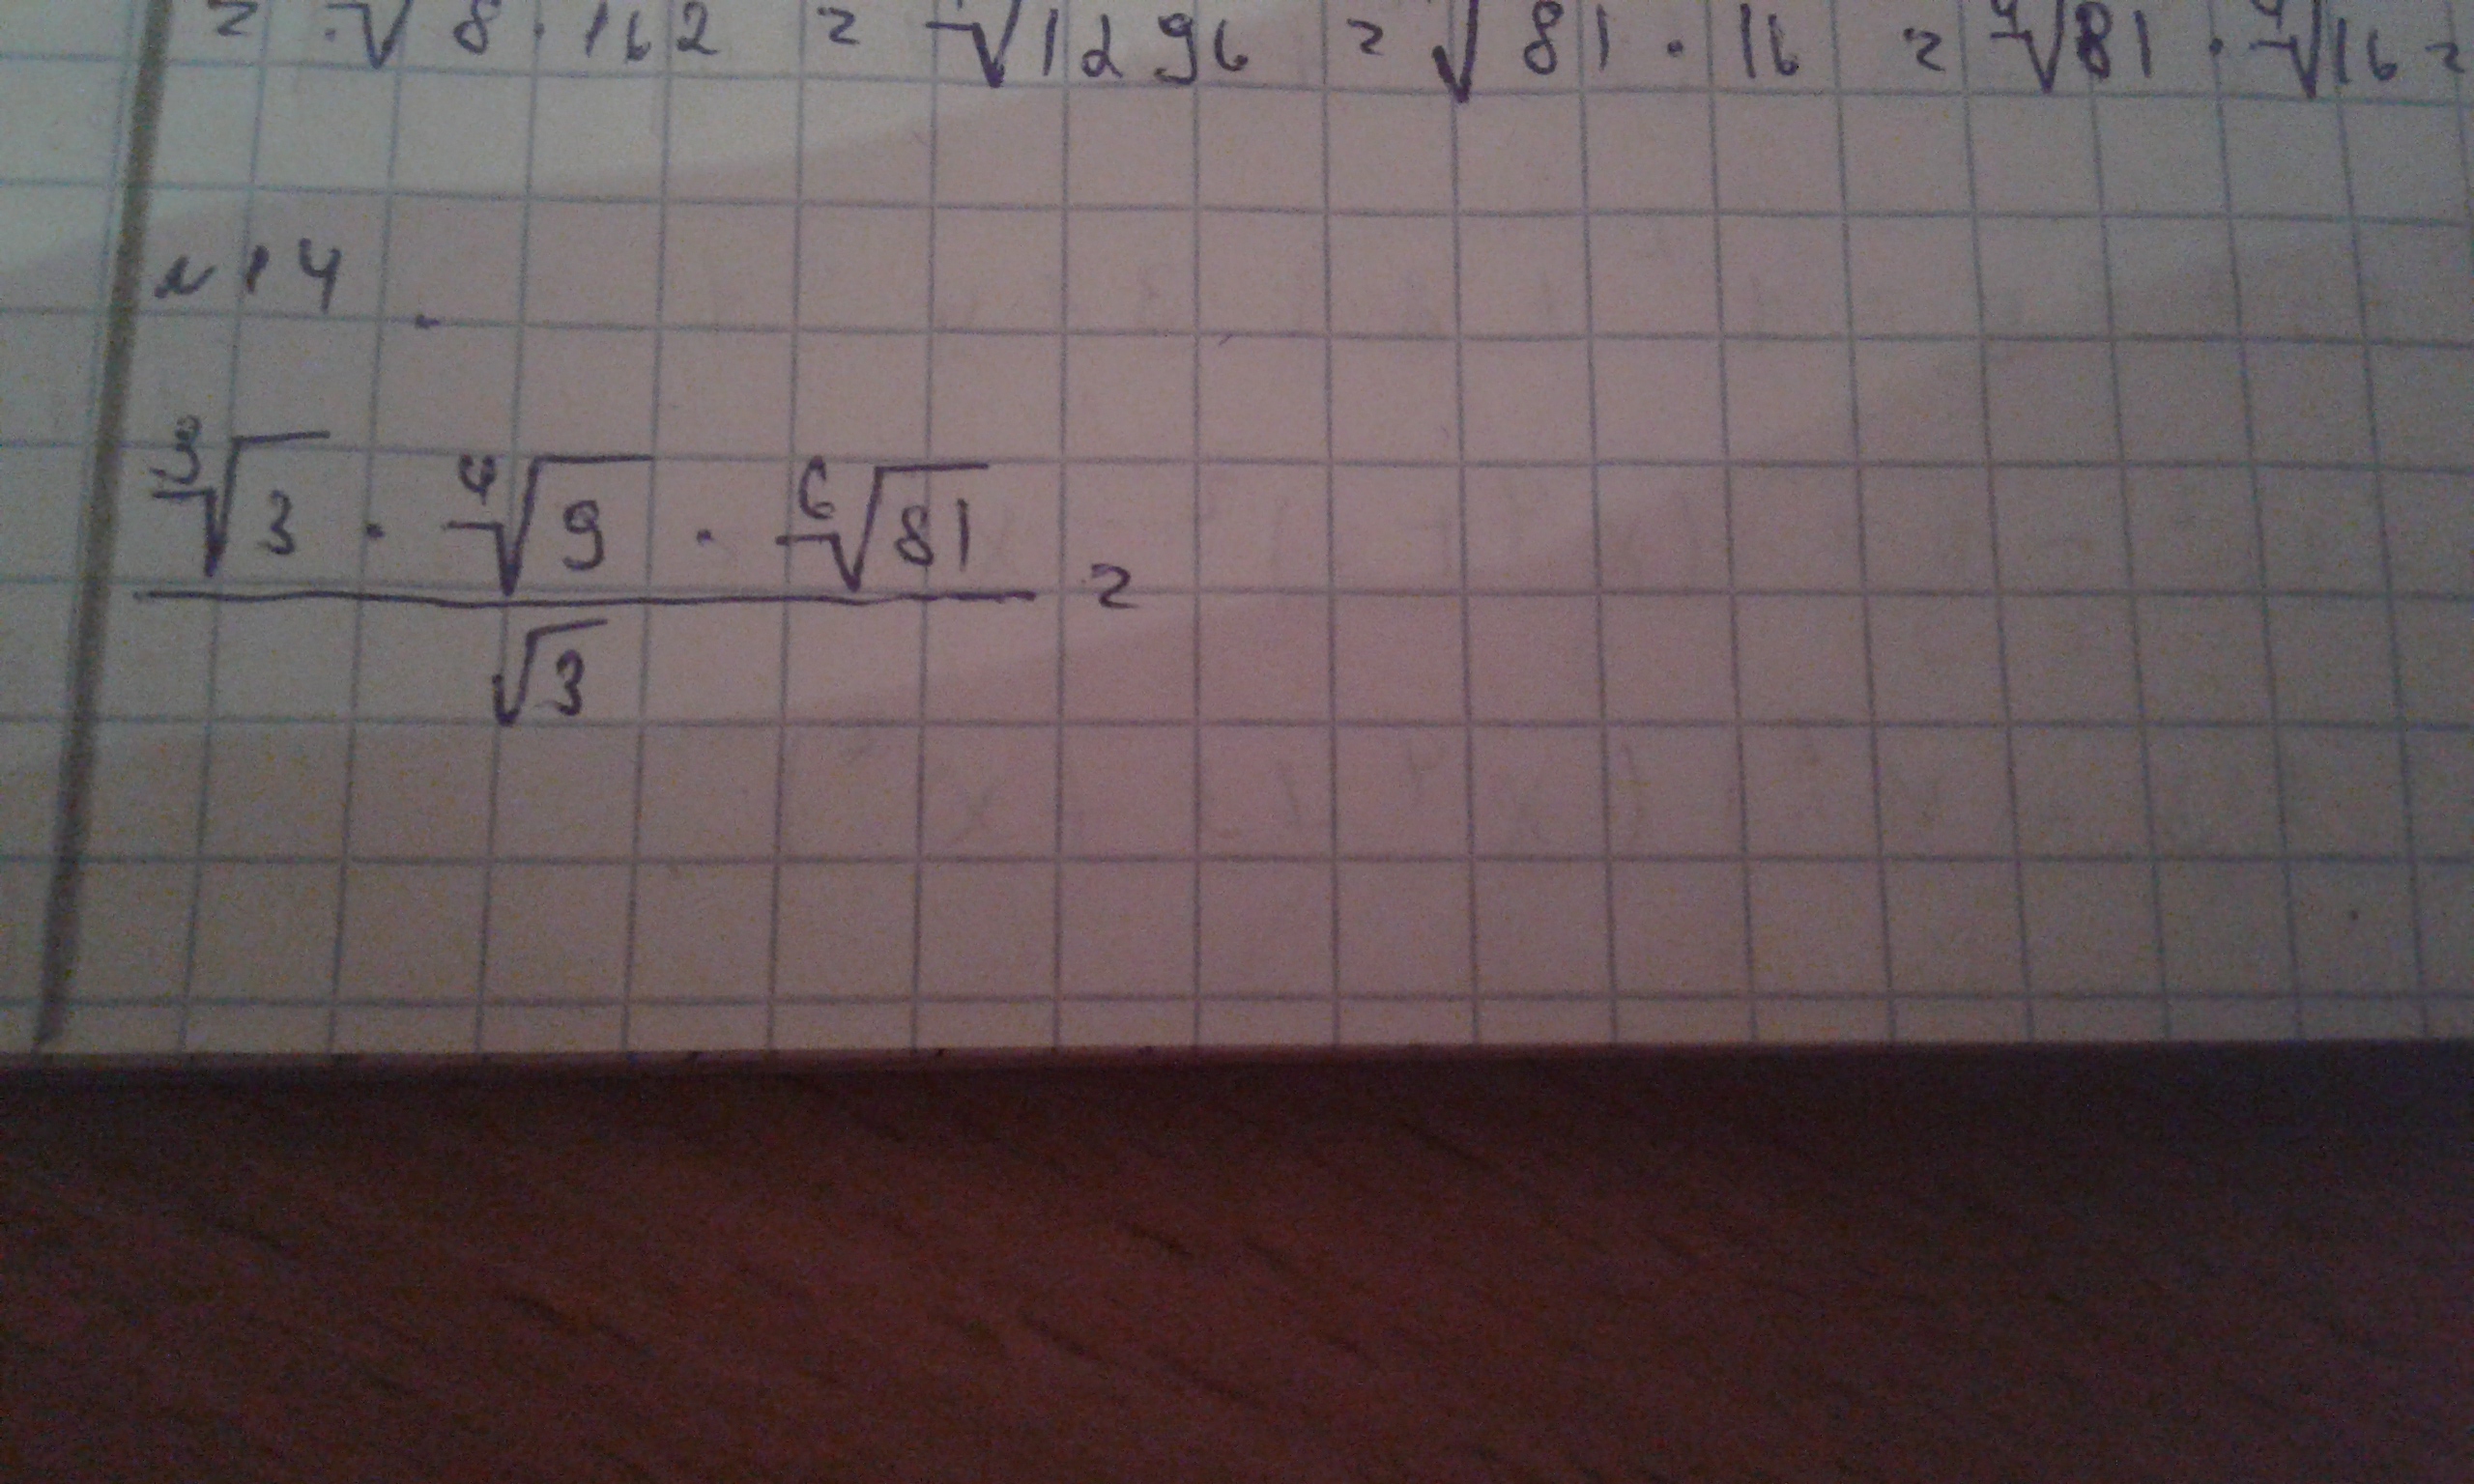 = √8 · 162 = √1296 = √81 · 16 = ⁴√81 · ⁴√16 =
№14
(³√3 · ⁴√9 · ⁶√81) / √3 =